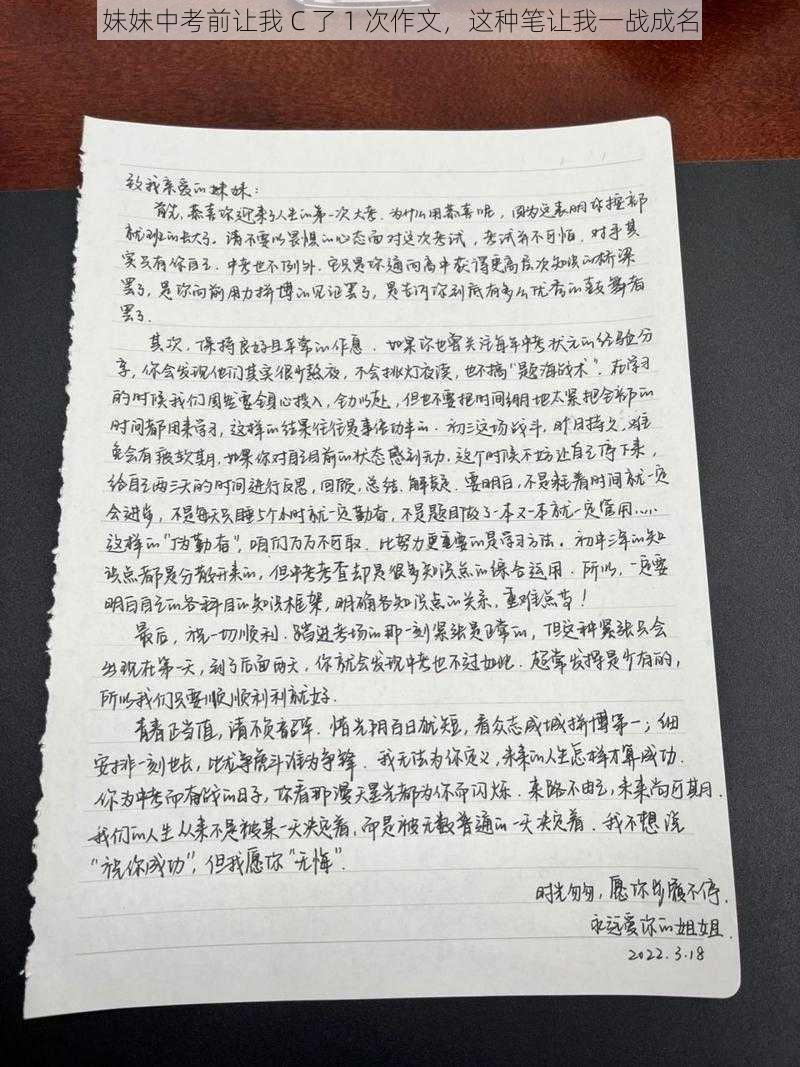 妹妹中考前让我 C 了 1 次作文，这种笔让我一战成名
致我亲爱的妹妹：
首先，恭喜你迎来了人生的第一次大考. 为什么用恭喜呢，因为这表明你按部
就班的长大了. 请不要以畏惧的心态面对这次考试，考试并不可怕. 对手其
实只有你自己. 中考也不例外. 它只是你通向高中获得更高层次知识的桥梁
罢了，是你向前用力拼搏的见证罢了，是告诉你到底有多么优秀的鼓舞者
罢了.
其次，保持良好且平常的作息. 如果你也曾关注每年中考状元的经验分
享，你会发现他们其实很少熬夜，不会挑灯夜读，也不搞“题海战术”. 在学习
的时候我们固然要全身心投入，全力以赴，但也不要把时间绷地太紧把全部的
时间都用来学习，这样的结果往往是事倍功半的. 初三这场战斗，昨日持久，难
免会有疲软期，如果你对自己目前的状态感到无力. 这个时候不妨让自己停下来，
给自己两三天的时间进行反思，回顾，总结、解疑. 要明白，不是耗着时间就一定
会进步，不是每天只睡5个小时就一定勤奋，不是题目做了一本又一本就一定管用……
这样的“伪勤奋”，咱们万万不可取. 比努力更重要的是学习方法. 初中三年的知
识点都是分散开来的，但中考考查却是很多知识点的综合运用. 所以，一定要
明白自己的各科目的知识框架，明确各知识点的关系，重难点等！
最后，祝一切顺利. 踏进考场的那一刻紧张是正常的，但这种紧张只会
出现在第一天，到了后面两天，你就会发现中考也不过如此. 超常发挥是少有的，
所以我们只要顺顺利利就好.
青春正当值，请不负韶华. 惜光阴百日犹短，看众志成城拼搏第一；细
安排一刻也长，比龙争虎斗谁为争锋. 我无法为你定义，未来的人生怎样才算成功.
你为中考而奋战的日子，你看那漫天星光都为你而闪烁. 来路不由己，未来尚可期月.
我们的人生从来不是被某一天决定着，而是被无数普通的一天决定着. 我不想说
“祝你成功”，但我愿你“无悔”.
时光匆匆，愿你步履不停.
永远爱你的姐姐.
2022.3.18